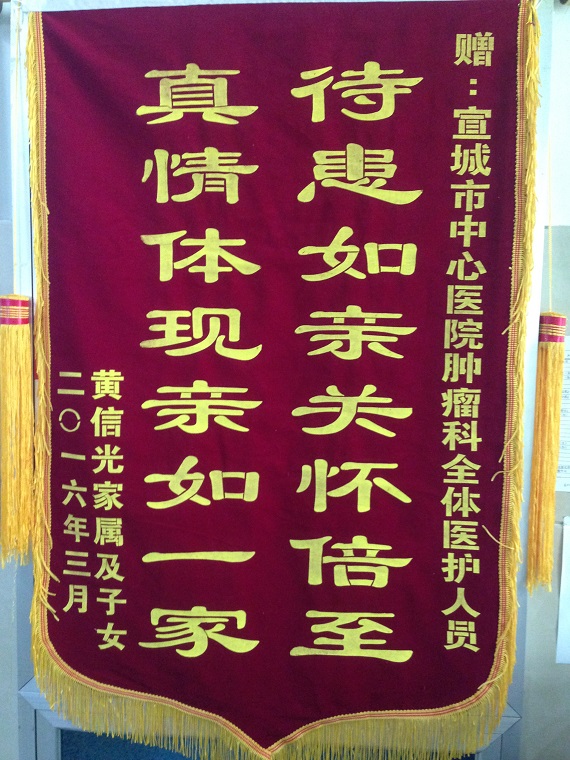 赠：宣城市中心医院肿瘤科全体医护人员
待患如亲关怀倍至
真情体现亲如一家
黄信光家属及子女
二〇一六年三月